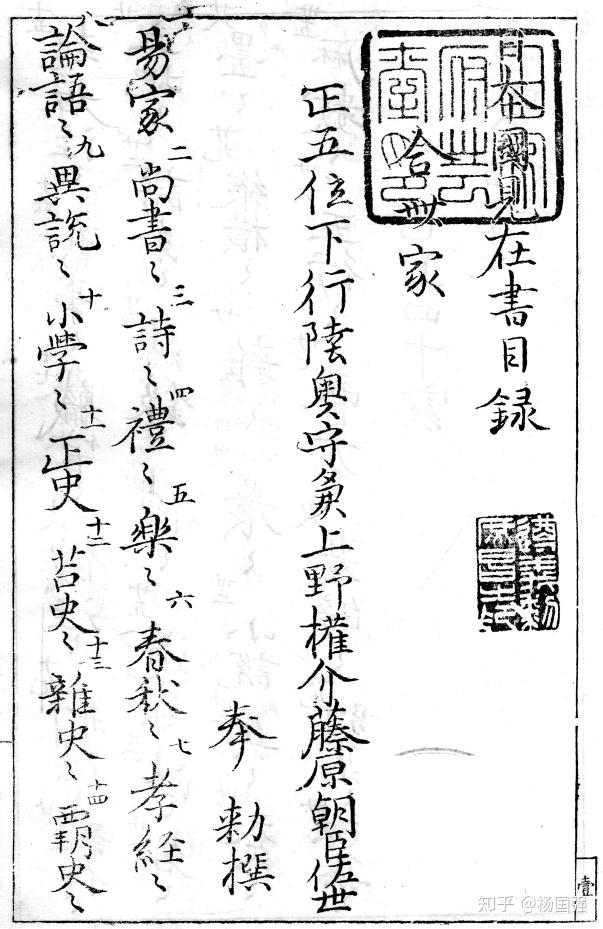 日本國見在書目録
合卌家
正五位下行陸奥守兼上野權介藤原朝臣佐世
奉 勅撰
易家 二 尚書〻 三 詩〻 四 禮〻 五 樂〻 六 春秋〻 七 孝経〻
八 論語〻 九 異説〻 十 小學〻 十一 正史 十二 古史〻 十三 雜史〻 十四 覇史〻
壹
知乎 @杨国强